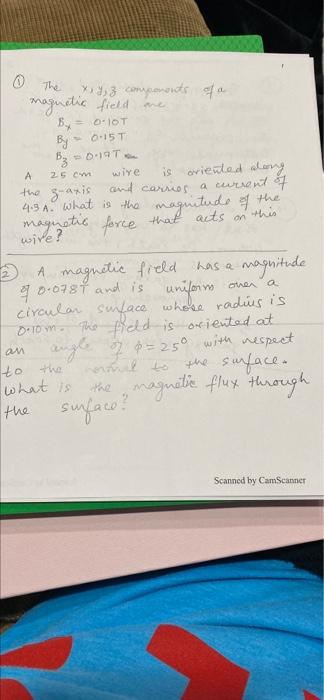 ① The x, y, z components of a
magnetic field are
Bx = 0.10T
By = 0.15T
Bz = 0.19T
A 25 cm wire is oriented along
the z-axis and carries a current of
4.3A. What is the magnitude of the
magnetic force that acts on this
wire?
② A magnetic field has a magnitude
of 0.078T and is uniform over a
circular surface whose radius is
0.10m. The field is oriented at
an angle of φ = 25° with respect
to the normal to the surface.
What is the magnetic flux through
the surface?
Scanned by CamScanner